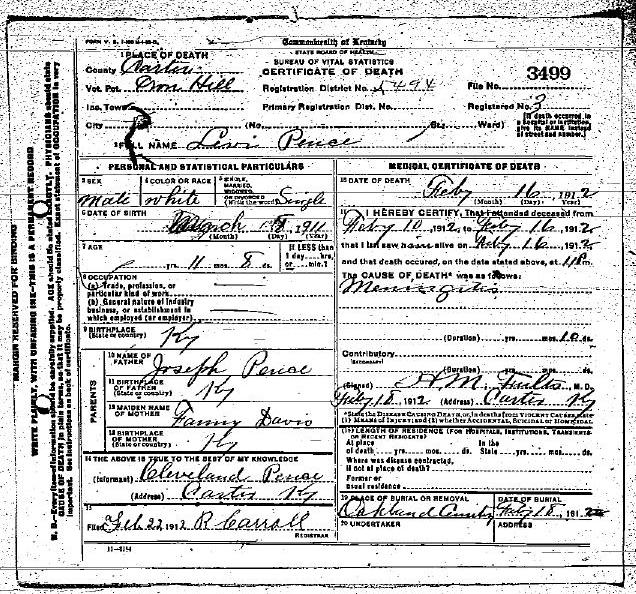 Commonwealth of Kentucky
STATE BOARD OF HEALTH
BUREAU OF VITAL STATISTICS
CERTIFICATE OF DEATH
1 PLACE OF DEATH
County Carter
Vot. Pct. Iron Hill
Registration District No. 5494
File No. 3499
Inc. Town
Primary Registration Dist. No.
Registered No. 3
City (No. St. Ward)
[If death occurred in a hospital or institution, give its NAME instead of street and number.]
2 FULL NAME Pence
PERSONAL AND STATISTICAL PARTICULARS
3 SEX Male
4 COLOR OR RACE white
5 SINGLE, MARRIED, WIDOWED, OR DIVORCED (Write the word) Single
6 DATE OF BIRTH March 8, 1911
(Month) (Day) (Year)
7 AGE
yrs. 11 mos. 8 ds.
If LESS than 1 day... hrs. or... min.?
8 OCCUPATION
(a) Trade, profession, or particular kind of work
(b) General nature of industry business, or establishment in which employed (or employer)
9 BIRTHPLACE (State or country) Ky
PARENTS
10 NAME OF FATHER Joseph Pence
11 BIRTHPLACE OF FATHER (State or country) Ky
12 MAIDEN NAME OF MOTHER Fanny Davis
13 BIRTHPLACE OF MOTHER (State or country) Ky
14 THE ABOVE IS TRUE TO THE BEST OF MY KNOWLEDGE
(Informant) Cleveland Pence
(Address) Carter Ky
15
Filed Feb 22 1912 R Carroll
REGISTRAR
MEDICAL CERTIFICATE OF DEATH
16 DATE OF DEATH Feby 16, 1912
(Month) (Day) (Year)
17 I HEREBY CERTIFY, That I attended deceased from
Feby 10, 1912, to Feby 16, 1912
that I last saw alive on Feby 16, 1912
and that death occured, on the date stated above, at m.
The CAUSE OF DEATH* was as follows:
Meningitis
(Duration) yrs. mos. 10 ds.
Contributory
(Secondary)
(Duration) yrs. mos. ds.
(Signed) H M M. D.
Feby 18, 1912 (Address) Carter Ky
*State the DISEASE CAUSING DEATH, or, in deaths from VIOLENT CAUSES, state (1) MEANS OF INJURY; and (2) whether ACCIDENTAL, SUICIDAL or HOMICIDAL
18 LENGTH OF RESIDENCE (FOR HOSPITALS, INSTITUTIONS, TRANSIENTS OR RECENT RESIDENTS)
At place of death yrs. mos. ds. In the State yrs. mos. ds.
Where was disease contracted, if not at place of death?
Former or usual residence
19 PLACE OF BURIAL OR REMOVAL
Oakland
DATE OF BURIAL
Feby 18, 1912
20 UNDERTAKER
ADDRESS
MARGIN RESERVED FOR BINDING
WRITE PLAINLY, WITH UNFADING INK—THIS IS A PERMANENT RECORD
N. B.—Every item of information should be carefully supplied. AGE should be stated EXACTLY. PHYSICIANS should state CAUSE OF DEATH in plain terms, so that it may be properly classified. Exact statement of OCCUPATION is very important. See instructions on back of certificate.